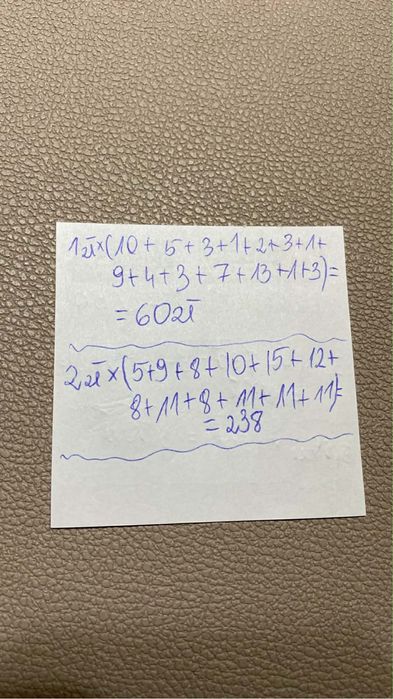 1zł×(10+5+3+1+2+3+1+
9+4+3+7+13+1+3)=
=60zł
2zł×(5+9+8+10+15+12+
8+11+8+11+11+11)=
=238